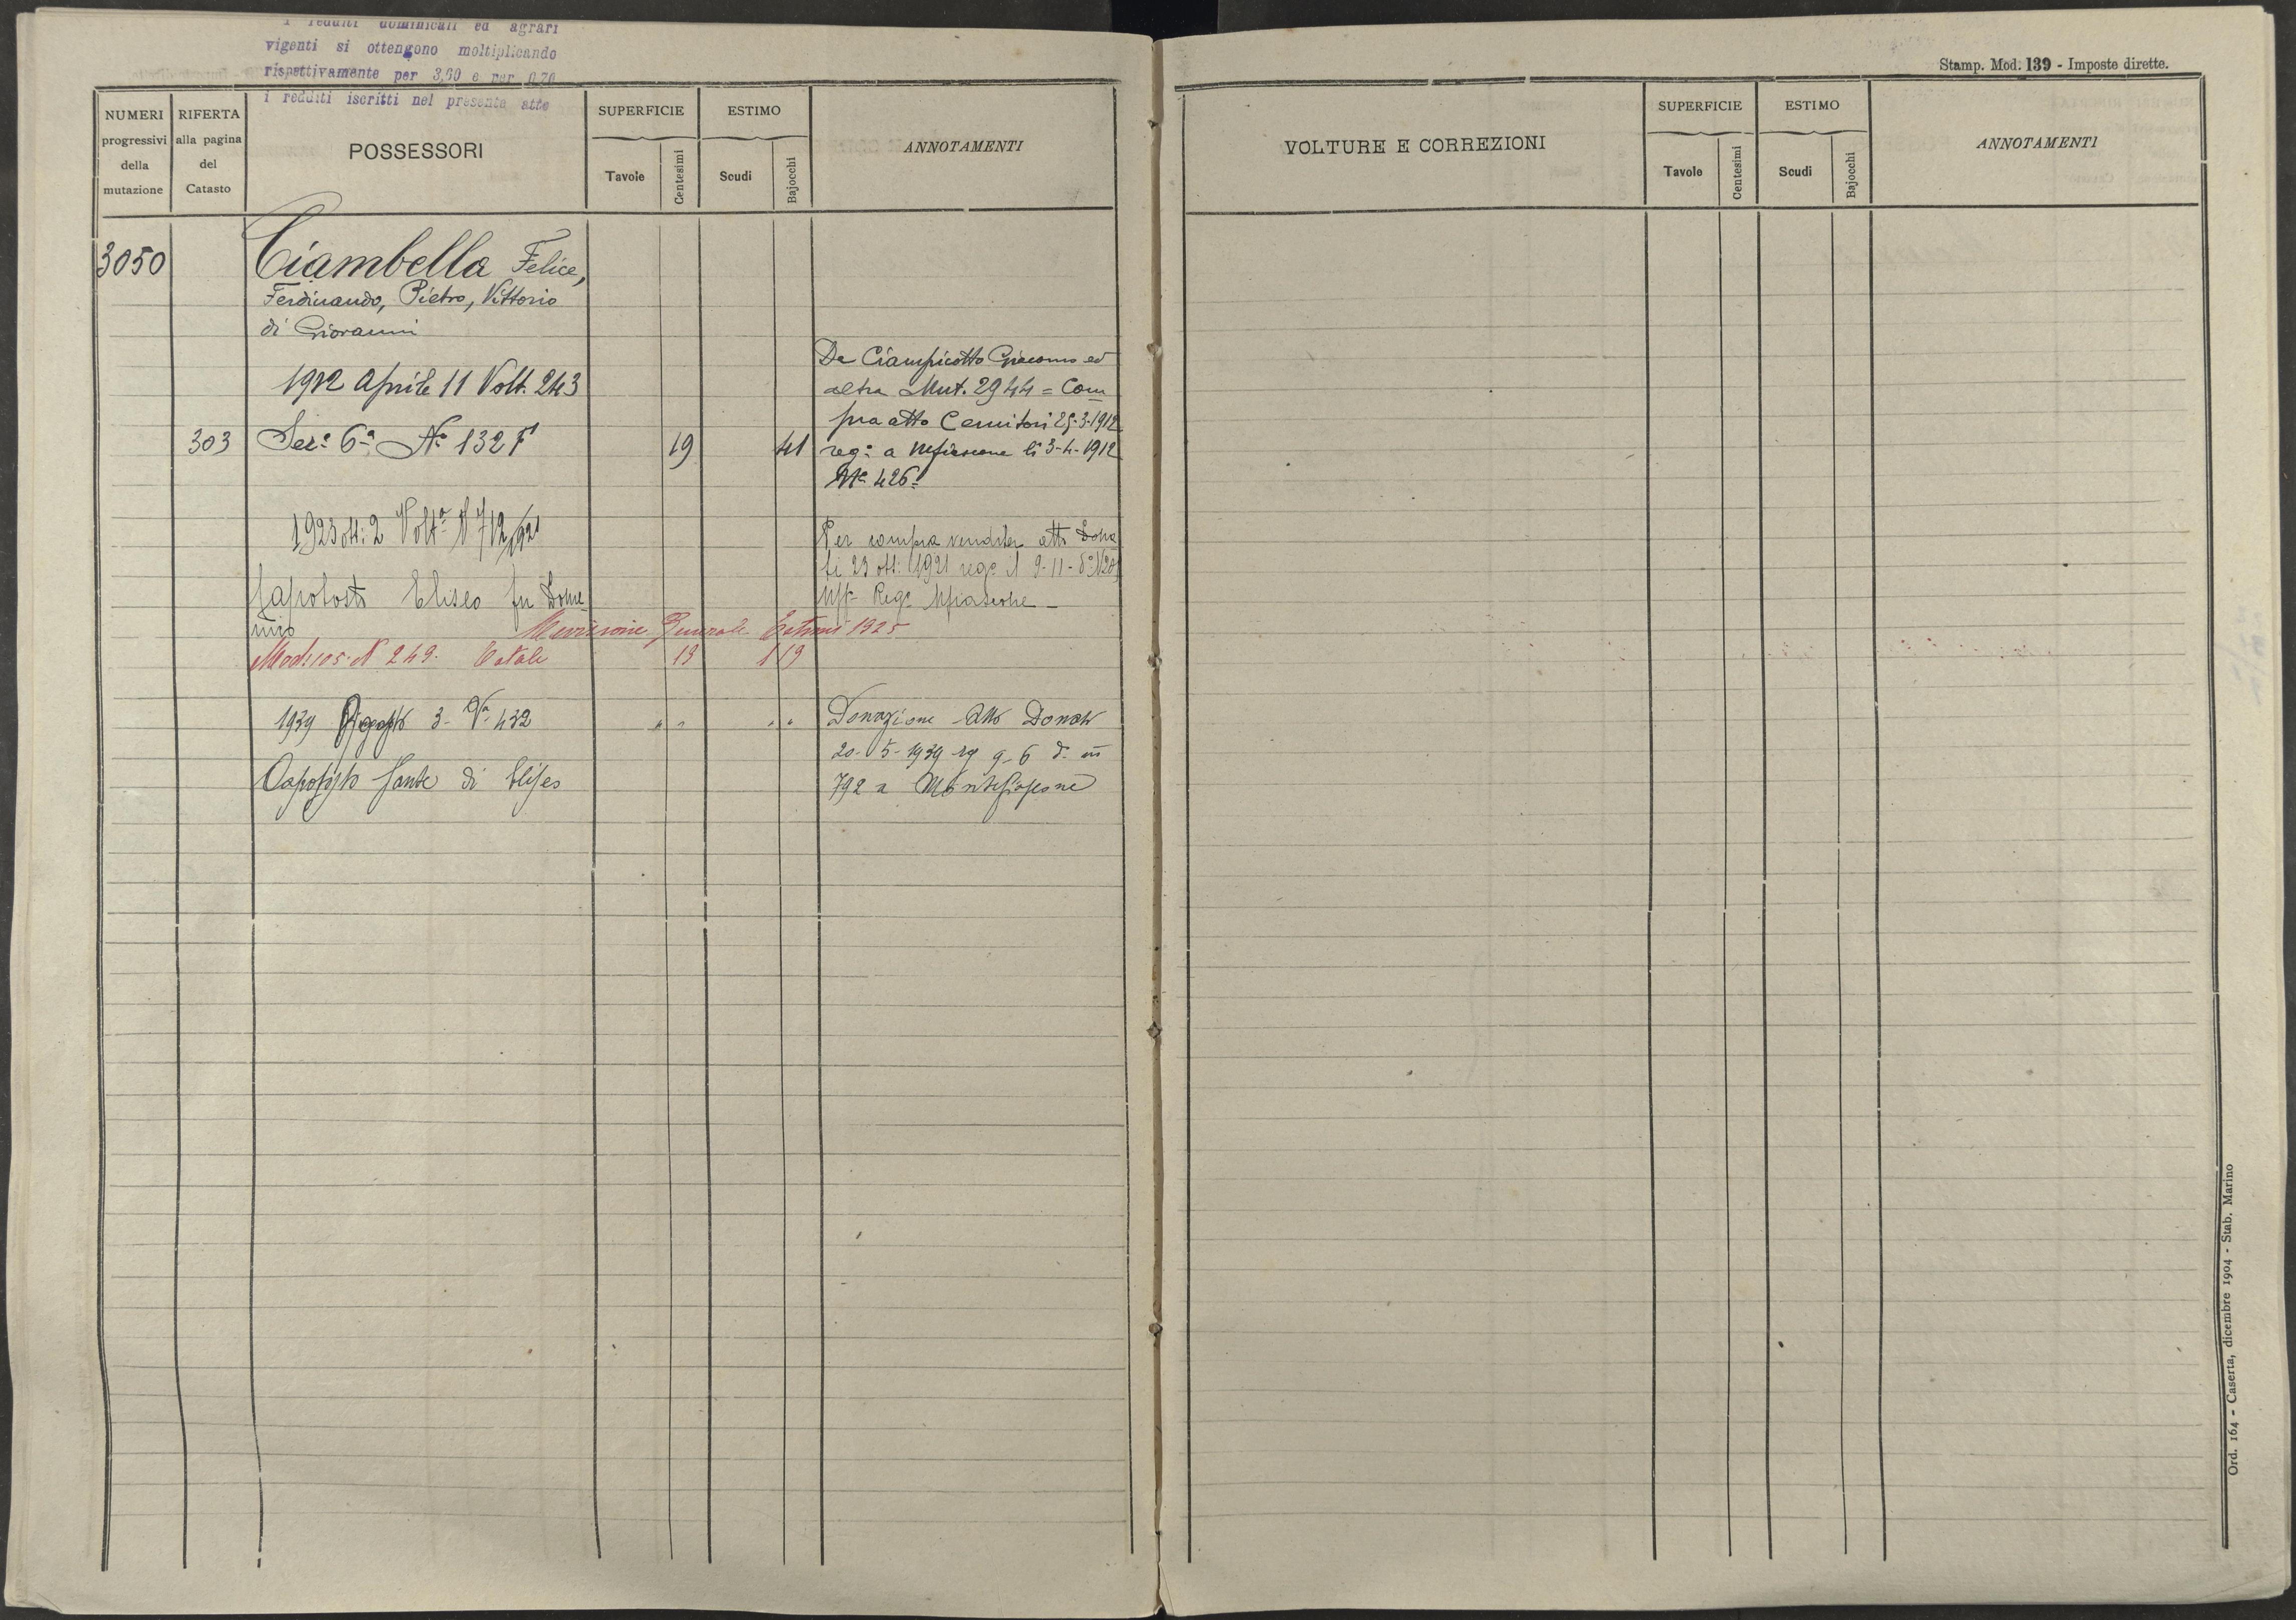 i redditi dominicali ed agrari
vigenti si ottengono moltiplicando
rispettivamente per 3,60 e per 0,70
i redditi iscritti nel presente atto
NUMERI
progressivi
della
mutazione
RIFERTA
alla pagina
del
Catasto
POSSESSORI
SUPERFICIE
Tavole
Centesimi
ESTIMO
Scudi
Bajocchi
ANNOTAMENTI
3050 Ciambella Felice,
Ferdinando, Pietro, Vittorio
di Giovanni
1912 Aprile 11 Volt. 243
303 Sez: 6ª Nº 132 F 19 41
Da Ciampicotto Giacomo ed
altra Mut. 2944 = Com
pra atto Cernitori 25-3-1912
reg: a Mfiascone li 3-4-1912
Nº 426=
1923 ott: 2 Voltª N 712/921
Capotosto Eliseo fu Dome
nico
Per compra vendita atto Dona
ti 23 ott: 1921 regº il 9-11-dº N20
Uffº Regº Mfiascone
Revisione Generale Estimi 1925
Mod: 105. N 249. Totale 19 1 19
1939 Agosto 3- Vª 432 " " " "
Capotosto Sante di Eliseo
Donazione Atto Donati
20-5-1939 rg 9-6 dº nº
792 a Montefiascone
Stamp. Mod. 139 - Imposte dirette.
VOLTURE E CORREZIONI
SUPERFICIE
Tavole
Centesimi
ESTIMO
Scudi
Bajocchi
ANNOTAMENTI
Ord. 164 - Caserta, dicembre 1904 - Stab. Marino